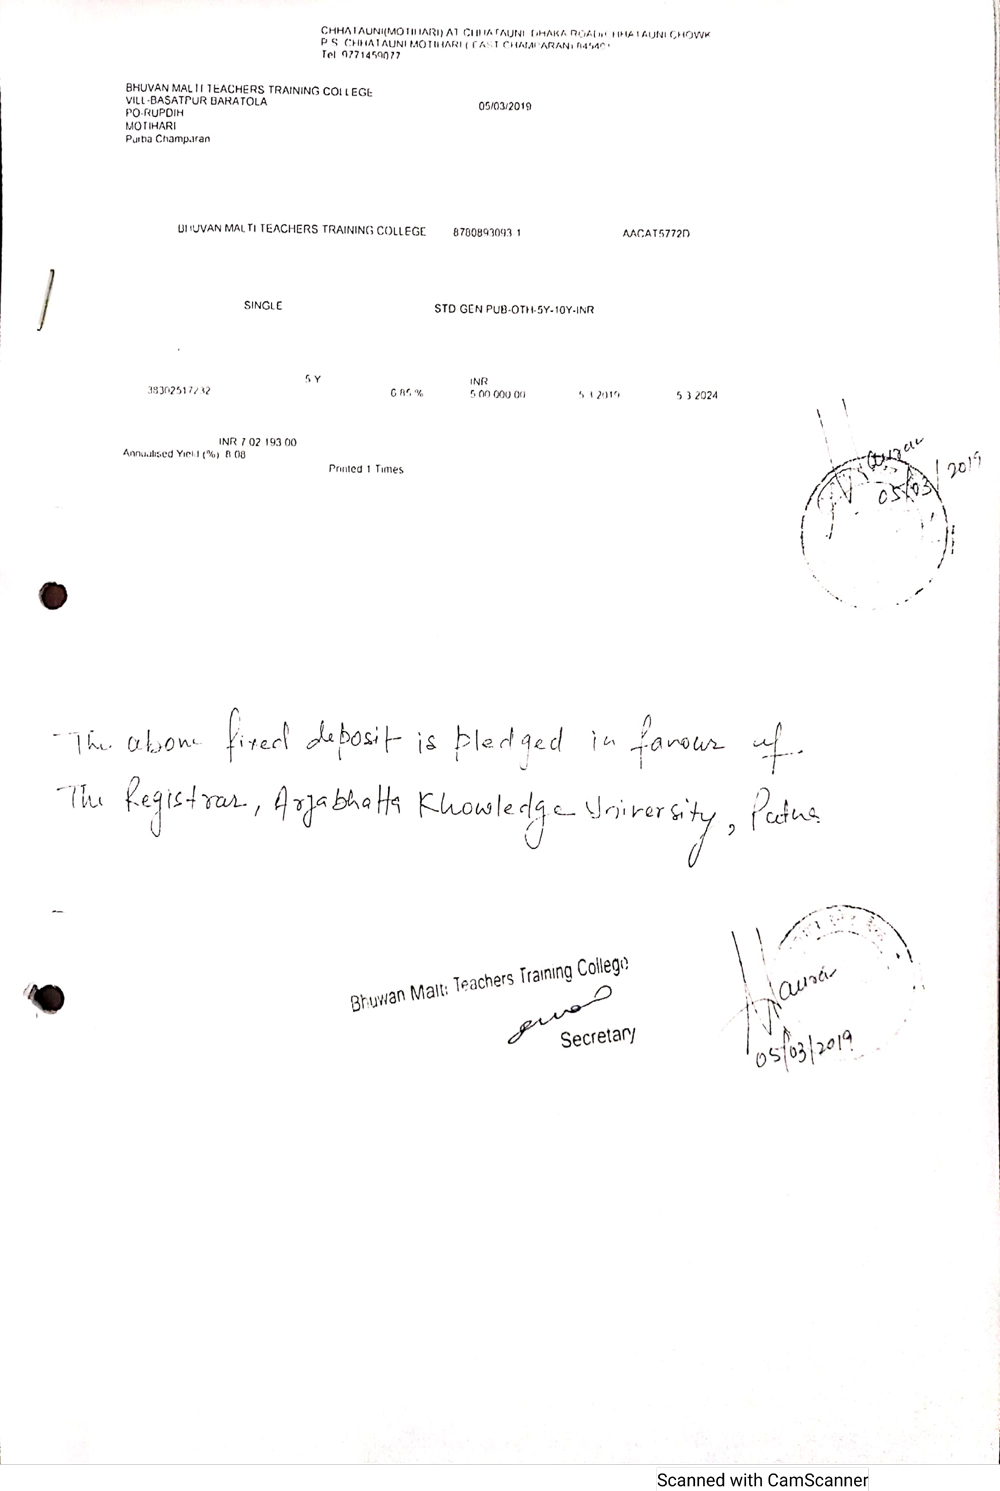 CHHATAUNI(MOTIHARI) AT CHHATAUNI DHAKA ROAD CHHATAUNI CHOWK
P S CHHATAUNI MOTIHARI ( EAST CHAMPARAN)
Tel 9771459077
BHUVAN MALTI TEACHERS TRAINING COLLEGE
VILL-BASATPUR BARATOLA
05/03/2019
PO-RUPDIH
MOTIHARI
Purba Champaran
BHUVAN MALTI TEACHERS TRAINING COLLEGE 8780893093 1 AACAT5772D
SINGLE STD GEN PUB-OTH-5Y-10Y-INR
5 Y INR
38302517232 6 85 % 5 00 000 00 5 3 2019 5 3 2024
INR 7 02 193 00
Annualised Yield (%) 8 08
Printed 1 Times
05/03/2019
The above fixed deposit is pledged in favour of
The Registrar, Arjabhatta Knowledge University, Patna
Bhuwan Malti Teachers Training College
Secretary
05/03/2019
Scanned with CamScanner